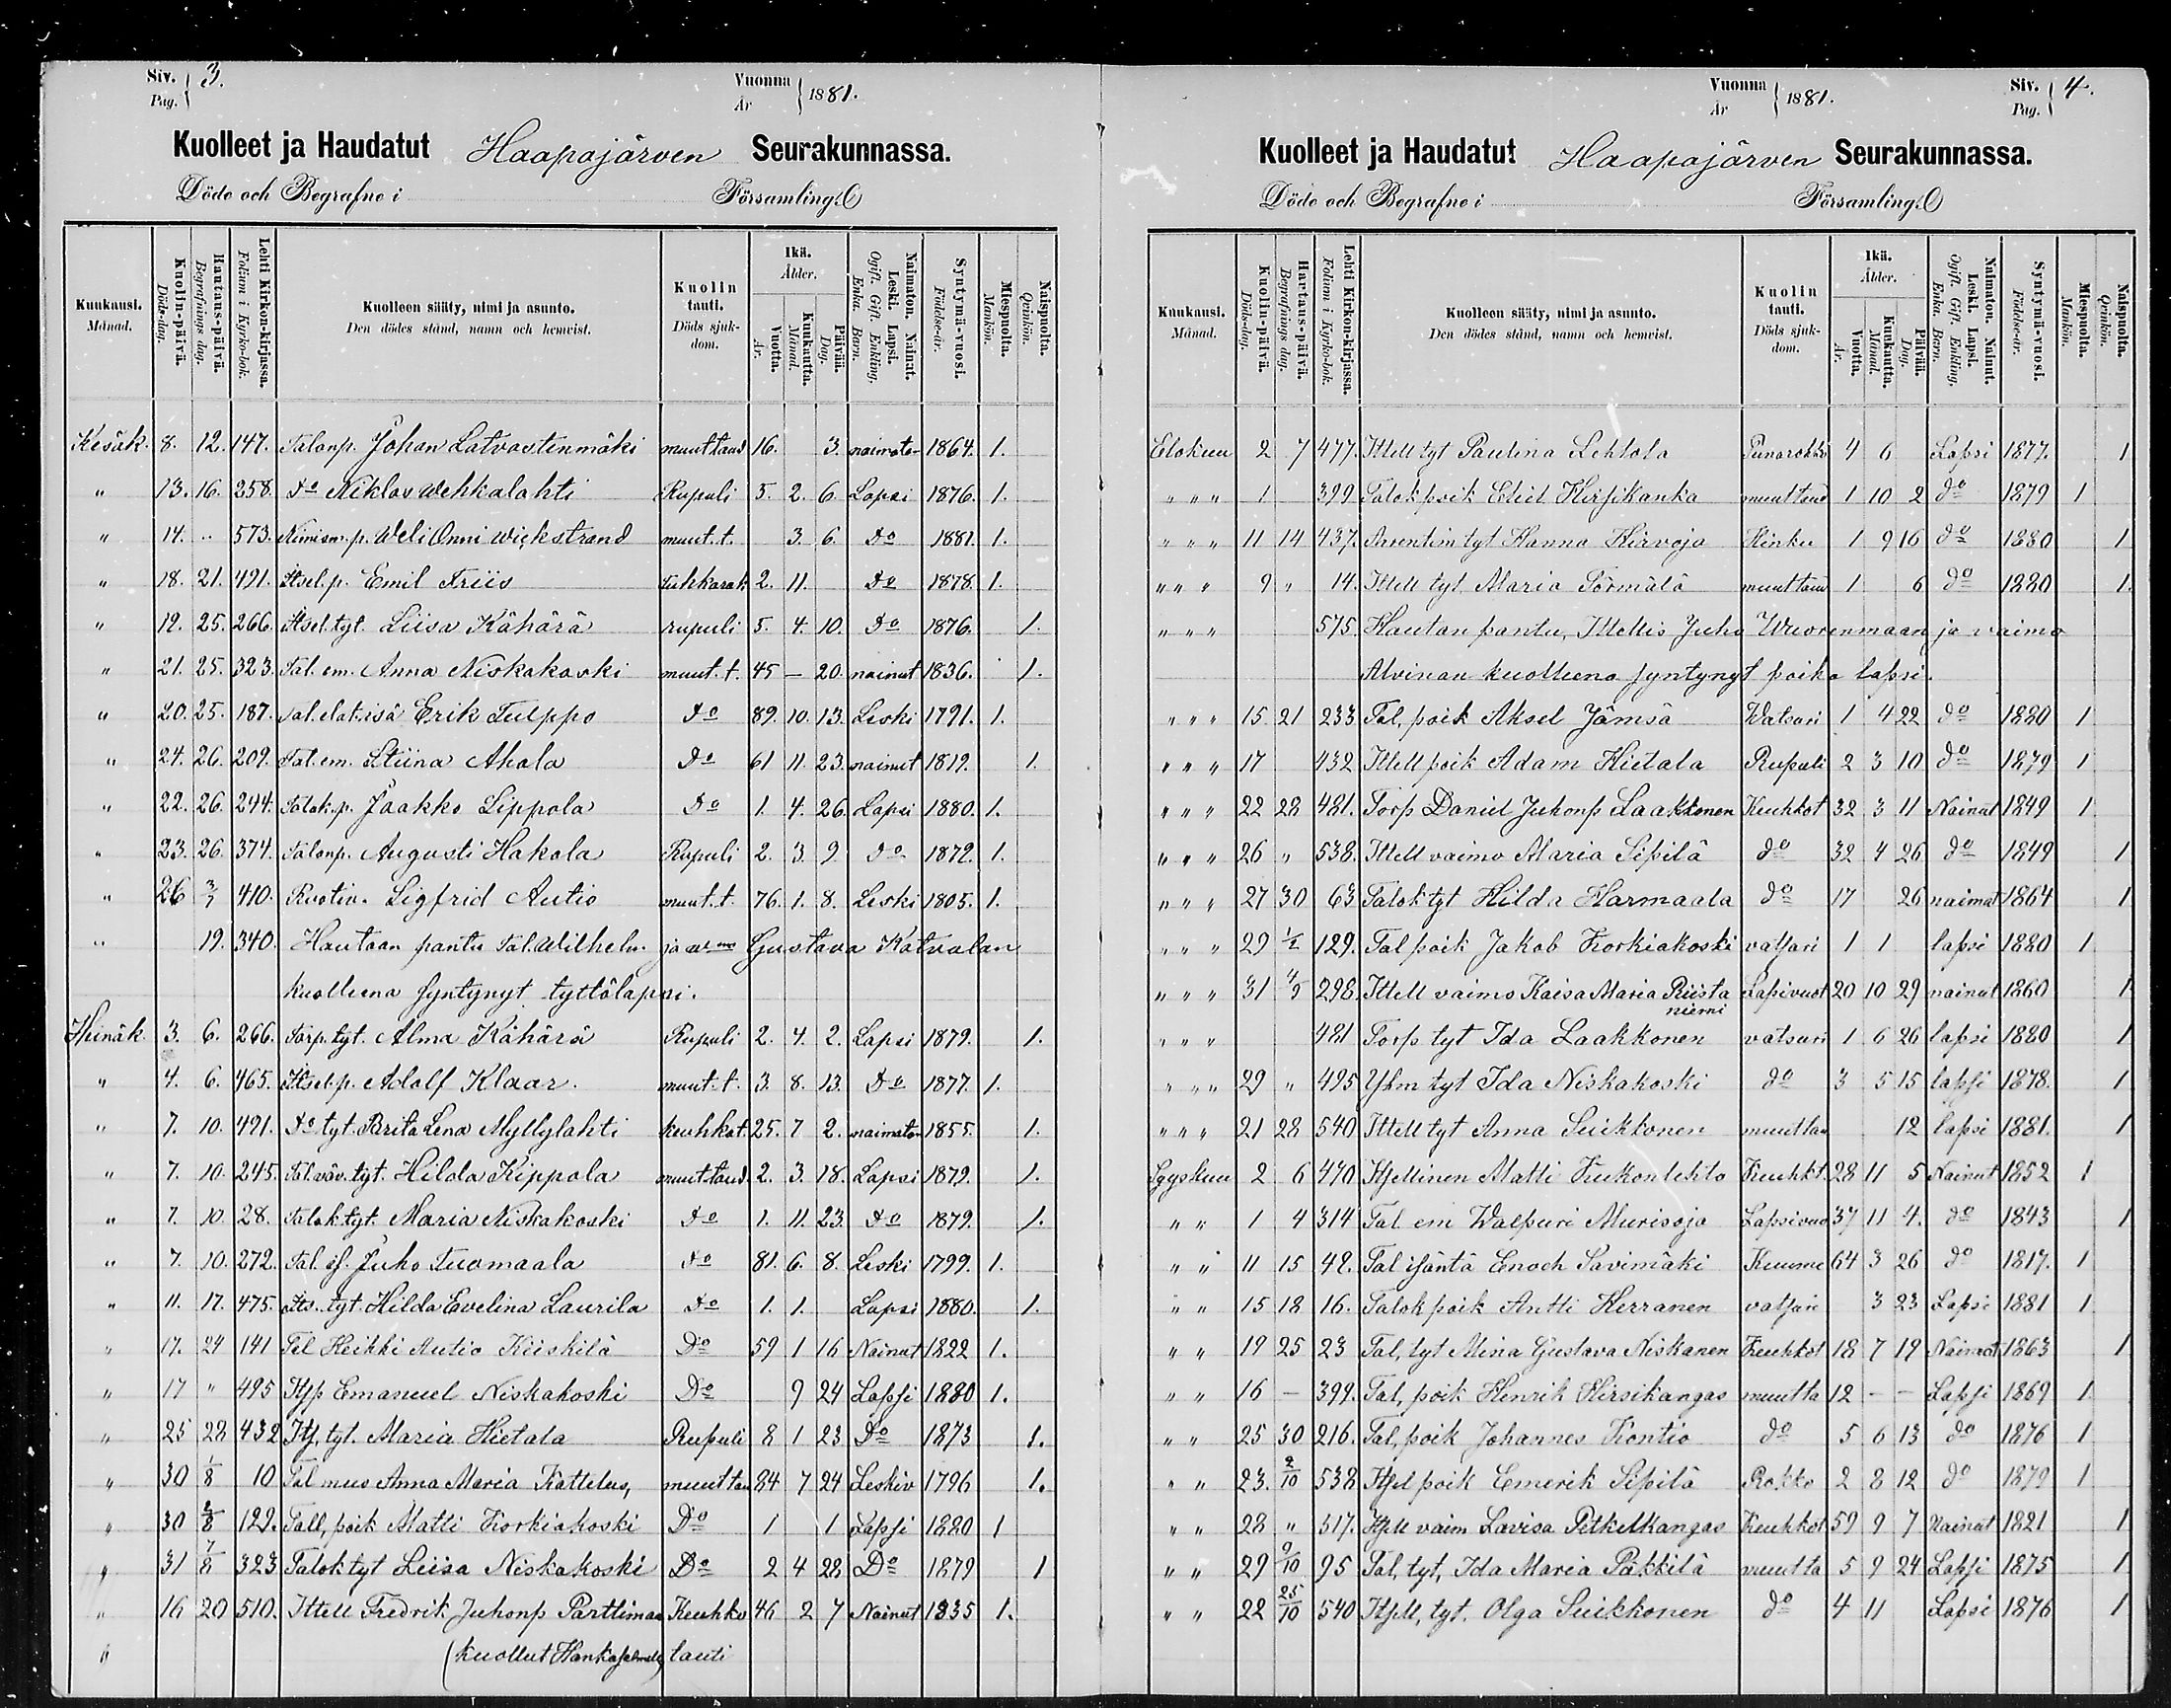 Siv. Pag. 3.
Vuonna År 1881.
Kuolleet ja Haudatut Haapajärven Seurakunnassa.
Döde och Begrafne i Församling.
Kuukausi. Månad.
Kuolin-päivä. Döds-dag.
Hautaus-päivä. Begrafnings dag.
Lehti Kirkon-kirjassa. Folium i Kyrko-bok.
Kuolleen sääty, nimi ja asunto. Den dödes stånd, namn och hemvist.
Kuolin tauti. Döds sjukdom.
Ikä. Ålder.
Vuotta. År.
Kuukautta. Månad.
Päivää. Dag.
Naimaton. Nainut. Leski. Lapsi. Ogift. Gift. Enkling. Enka. Barn.
Syntymä-vuosi. Födelse-år.
Miespuolta. Mankön.
Naispuolta. Qvinkön.
Kesäk. 8. 12. 147. Talonp. Johan Latvastenmäki muuttaud 16. 3. naimato- 1864. 1.
" 13. 16. 258. Do Niklas Wehkalahti Rupuli 5. 2. 6. Lapsi 1876. 1.
" 14. .. 573. Nimism. p. Weli Onni Wickstrand muut. t. 3. 6. Do 1881. 1.
" 18. 21. 491. Itsel. p. Emil Friis Tuhkarok 2. 11. Do 1878. 1.
" 19. 25. 266. Itsel. tyt. Liisa Kähärä rupuli 5. 4. 10. Do 1876. 1.
" 21. 25. 323. Tal. em. Anna Niskakoski muut. t. 45 — 20. nainut 1836. 1.
" 20. 25. 187. Tal. elat. isä Erik Tulppo Do 89. 10. 13. Leski 1791. 1.
" 24. 26. 209. Tal. em. Stiina Ahola Do 61 11. 23. nainut 1819. 1.
" 22. 26. 244. Talok. p. Jaakko Lippola Do 1. 4. 26. Lapsi 1880. 1.
" 23. 26. 374. Talonp. Augusti Hakola Rupuli 2. 3. 9 Do 1879. 1.
" 26 3/7 410. Ruotiv. Sigfrid Autio muut. t. 76. 1. 8. Leski 1805. 1.
" 19. 340. Hautaan pantu Tal. Wilhelm. ja wmo Gustava Katvalan
kuolleena syntynyt tyttölapsi.
Heinäk. 3. 6. 266. Torp. tyt. Alma Kähärä Rupuli 2. 4. 2. Lapsi 1879. 1.
" 4. 6. 465. Itsel. p. Adolf Klaar. muut. t. 3. 8. 13. Do 1877. 1.
" 7. 10. 491. Do tyt. Brita Lena Myllylahti keuhkot. 25. 7 2. naimaton 1855. 1.
" 7. 10. 245. Tal. väv. tyt. Hilda Kippola muuttaud. 2. 3. 18. Lapsi 1879. 1.
" 7. 10. 28. Talok. tyt. Maria Niskakoski Do 1. 11. 23. Do 1879. 1.
" 7. 10. 272. Tal. is. Juho Tuomaala Do 81. 6. 8. Leski 1799. 1.
" 11. 17. 475. Its. tyt. Hilda Evelina Laurila Do 1. 1. Lapsi 1880. 1.
" 17. 24 141 Tal Heikki Autio Kiiskilä Do 59 1 16 Nainut 1822 1.
" 17 " 495 Itsp Emanuel Niskakoski Do 9 24 Lapsi 1880 1.
" 25 28 432 Its, tyt. Maria Hietala Rupuli 8 1 23 Do 1873 1.
" 30 1/8 10 Tal muo Anna Maria Kattelus, muuttau 84 7 24 Leskiv 1796 1.
" 30 2/8 129. Tall, poik Matti Korkiakoski Do 1 1 Lapsi 1880 1
" 31 7/8 323 Talok tyt Liisa Niskakoski Do 2 4 28 Do 1879 1
" 16 20 510. Ittell Fredrik Juhonp Parttimaa Keuhko 46 2 7 Nainut 1835 1.
" (kuollut Hankasalmella tauti
Vuonna År 1881.
Siv. Pag. 4.
Kuolleet ja Haudatut Haapajärven Seurakunnassa.
Döde och Begrafne i Församling.
Kuukausi. Månad.
Kuolin-päivä. Döds-dag.
Hautaus-päivä. Begrafnings dag.
Lehti Kirkon-kirjassa. Folium i Kyrko-bok.
Kuolleen sääty, nimi ja asunto. Den dödes stånd, namn och hemvist.
Kuolin tauti. Döds sjukdom.
Ikä. Ålder.
Vuotta. År.
Kuukautta. Månad.
Päivää. Dag.
Naimaton. Nainut. Leski. Lapsi. Ogift. Gift. Enkling. Enka. Barn.
Syntymä-vuosi. Födelse-år.
Miespuolta. Mankön.
Naispuolta. Qvinkön.
Elokuu 2 7 477. Ittell tyt Paulina Lehtola Punarokko 4 6 Lapsi 1877. 1
" " " 1 399 Talok poik Eliel Hirsikanka muuttaud 1 10 2 do 1879 1
" " " 11 14 437. Arrentim tyt Hanna Hirvoja Hinku 1 9 16 do 1880 1
" " " 9 " 14. Ittell tyt Maria Törmälä muuttaud 1 6 do 1880 1.
" " " 575. Hautan pantu, Ittellis Juho Wuorenmaan ja vaimo
Alvinan kuolleena syntynyt poika lapsi.
" " " 15 21 233 Tal, poik Aksel Jämsä Watsuri 1 4 22 do 1880 1
" " " 17 432 Ittell poik Adam Hietala Rupuli 2 3 10 do 1879 1
" " " 22 28 481. Torp Daniel Juhonp Laakkonen Keuhkot 32 3 11 Nainut 1849 1
" " " 26 " 538. Ittell vaimo Maria Sipilä do 32 4 26 do 1849 1
" " " 27 30 63 Talok tyt Hilda Harmaala do 17 26 naimat 1864 1
" " " 29 129. Tal poik Jakob Korkiakoski vatsari 1 1 lapsi 1880 1
" " " 31 4/9 298. Ittell vaimo Kaisa Maria Riistaniemi Lapsivuot 20 10 29 nainut 1860 1
" " " 481 Torp tyt Ida Laakkonen vatsuri 1 6 26 lapsi 1880 1
" " " 29 " 495 Yhm tyt Ida Niskakoski do 3 5 15 lapsi 1878. 1
" " " 21 28 540 Ittell tyt Anna Suikkonen muuttau 12 lapsi 1881. 1
Syyskuu 2 6 470 Itsellinen Matti Kukonlehto Keuhkt. 28 11 5 Nainut 1852 1
" " 1 4 314 Tal em Walpuri Murisoja Lapsivuo 37 11 4. do 1843 1
" " 11 15 42. Tal isäntä Enoch Savimäki Kuume 64 3 26 do 1817. 1
" " 15 18 16. Talok poik Antti Herranen vatsari 3 23 Lapsi 1881 1
" " 19 25 23 Tal, tyt Mina Gustava Niskanen Keuhkot 18 7 19 Naimat 1863 1
" " 16 — 399. Tal, poik Henrik Hirsikangas muutta 12 — — Lapsi 1869 1.
" " 25 30 216. Tal, poik Johannes Kontio do 5 6 13 do 1876 1
" " 23. 2/10 538 Itsel poik Emerik Sipilä Rokko 2 8 12 do 1879 1
" " 28 " 517. Itsell vaim Lavisa Pitkelkangas Keuhkot 59 9 7 Nainut 1821 1
" " 29 9/10 95 Tal, tyt, Ida Maria Päkkilä muutta 5 9 24 Lapsi 1875 1
" " 22 25/10 540 Itsell, tyt. Olga Suikkonen do 4 11 Lapsi 1876 1